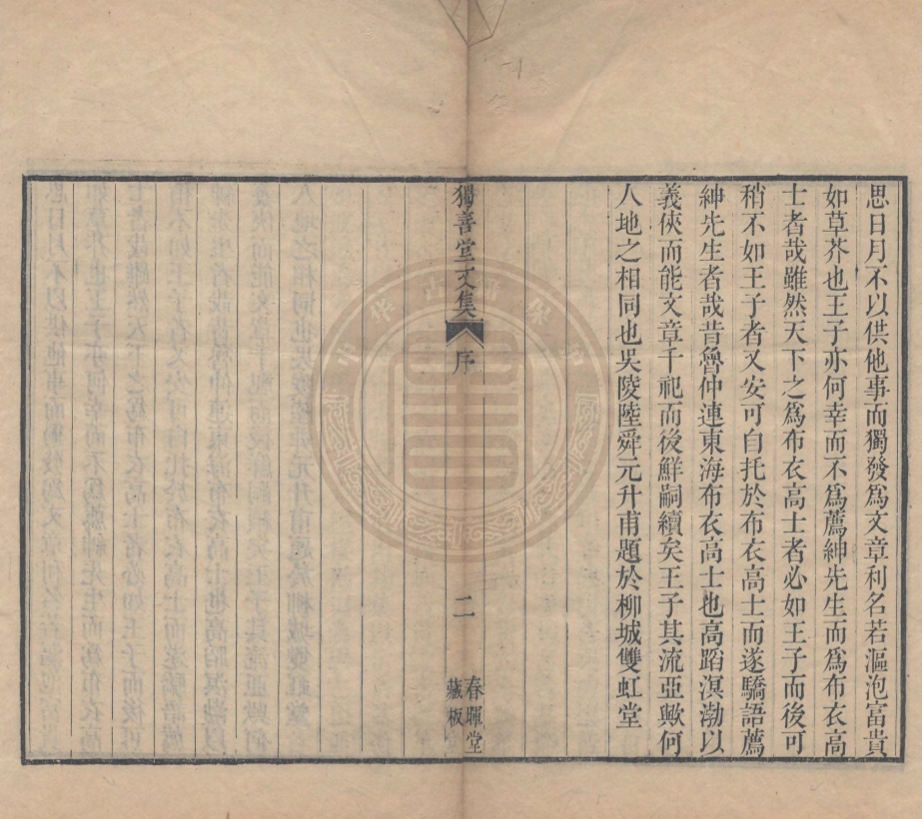 思日月不以供他事而獨發爲文章利名若漚泡富貴
如草芥也王子亦何幸而不爲薦紳先生而爲布衣高
士者哉雖然天下之爲布衣高士者必如王子而後可
稍不如王子者又安可自托於布衣高士而遂驕語薦
紳先生者哉昔魯仲連東海布衣高士也高蹈溟渤以
義俠而能文章千祀而後鮮嗣續矣王子其流亞歟何
人地之相同也吳陵陸舜元升甫題於柳城雙虹堂
獨善堂文集
序
二
春暉堂
藏板